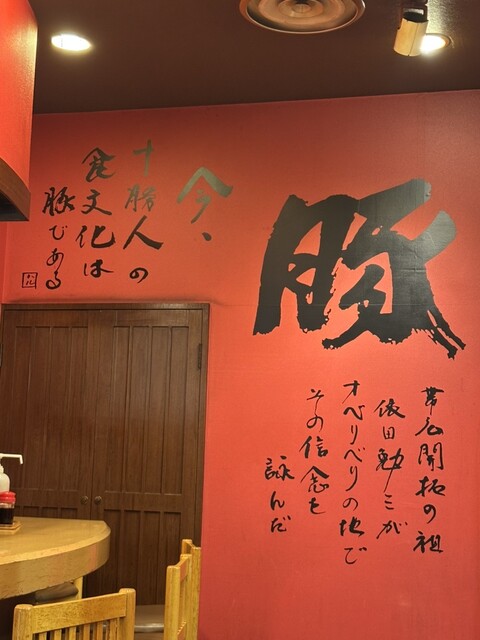 豚
帯広開拓の祖
依田勉三が
オベリベリの地で
その信念を
詠んだ
今、
十勝人の
食文化は
豚である